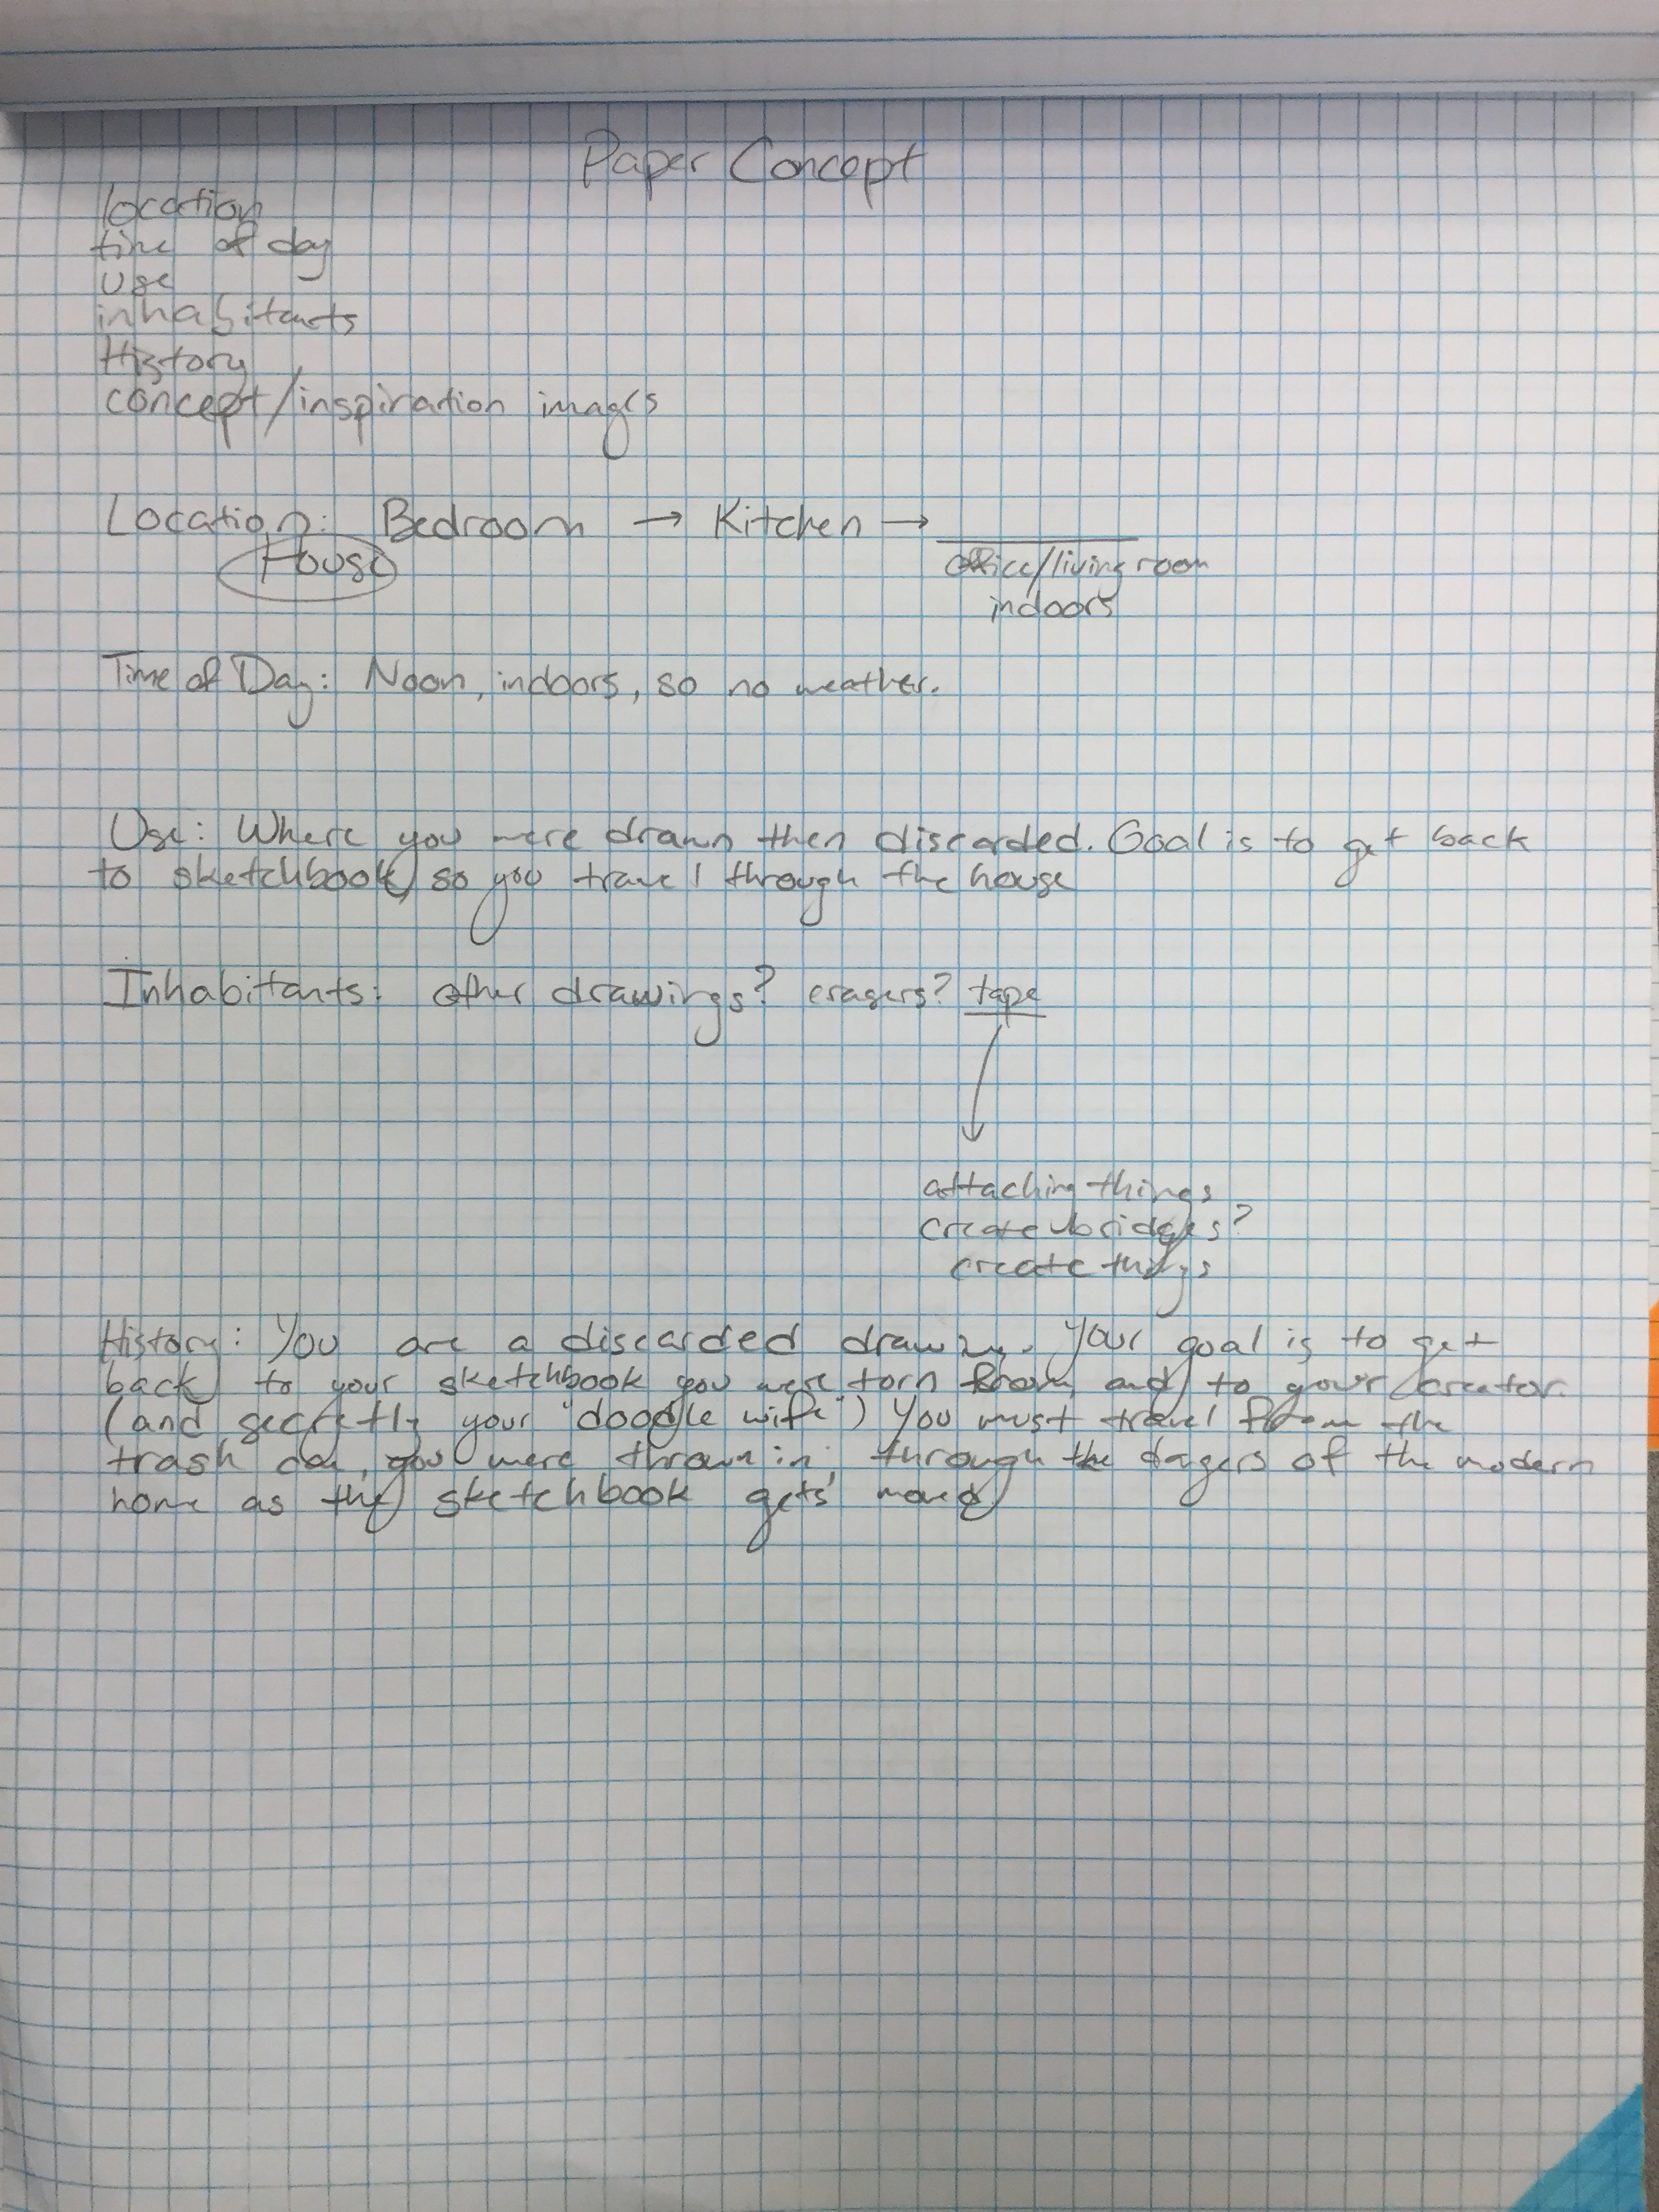 Paper Concept
location
time of day
use
inhabitants
History
concept/inspiration images
Location: Bedroom → Kitchen →
House
office/living room
indoors
Time of Day: Noon, indoors, so no weather.
Use: Where you were drawn then discarded. Goal is to get back
to sketchbook, so you travel through the house
Inhabitants: other drawings? erasers? tape
attaching things
create bridges?
create things
History: You are a discarded drawing. Your goal is to get
back to your sketchbook you were torn from and to your creator.
(and secretly your "doodle wife") You must travel from the
trash can, you were thrown in, through the dagers of the modern
home as the sketchbook gets moved